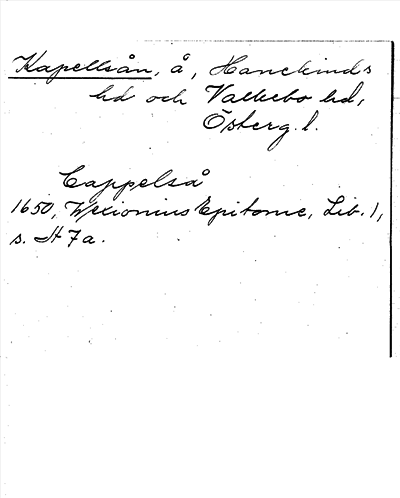 Kapellsån, å, Hanekinds
hd och Valkebo hd,
Österg. l.
Cappelså
1650, Wexionius Epitome, Lib. 1,
s. H 7a.